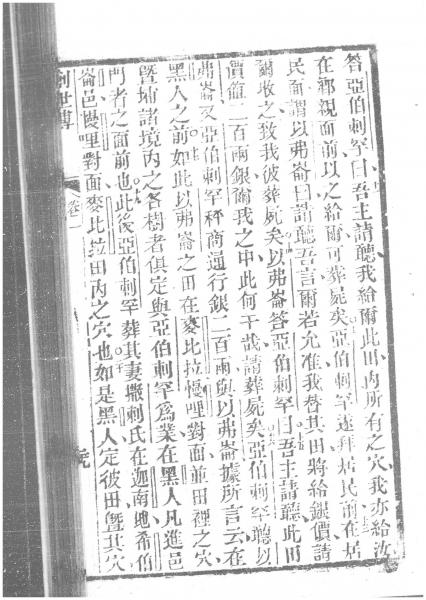 答亞伯剌罕曰吾主請聽我給爾此田內所有之穴我亦給汝
在鄰親面前以之給爾可葬屍矣亞伯剌罕遂拜居民前在居
民面謂以弗崙曰請聽吾言爾若允准我替其田將給銀價請
爾收之致我彼葬屍矣以弗崙答亞伯剌罕曰吾主請聽此田
價值二百兩銀爾我之中此何干哉請葬屍矣亞伯剌罕聽以
弗崙又亞伯剌罕秤商通行銀二百兩與以弗崙據所言云在
黑人之前如此以弗崙之田在麥比拉幔哩對面並田裡之穴
暨埔諸境內之各樹者俱定與亞伯剌罕為業在黑人凡進邑
門者之面前也此後亞伯剌罕葬其妻撒剌氏在迦南地希伯
崙邑幔哩對面麥比拉田內之穴也如是黑人定彼田暨其穴
創世傳 卷一